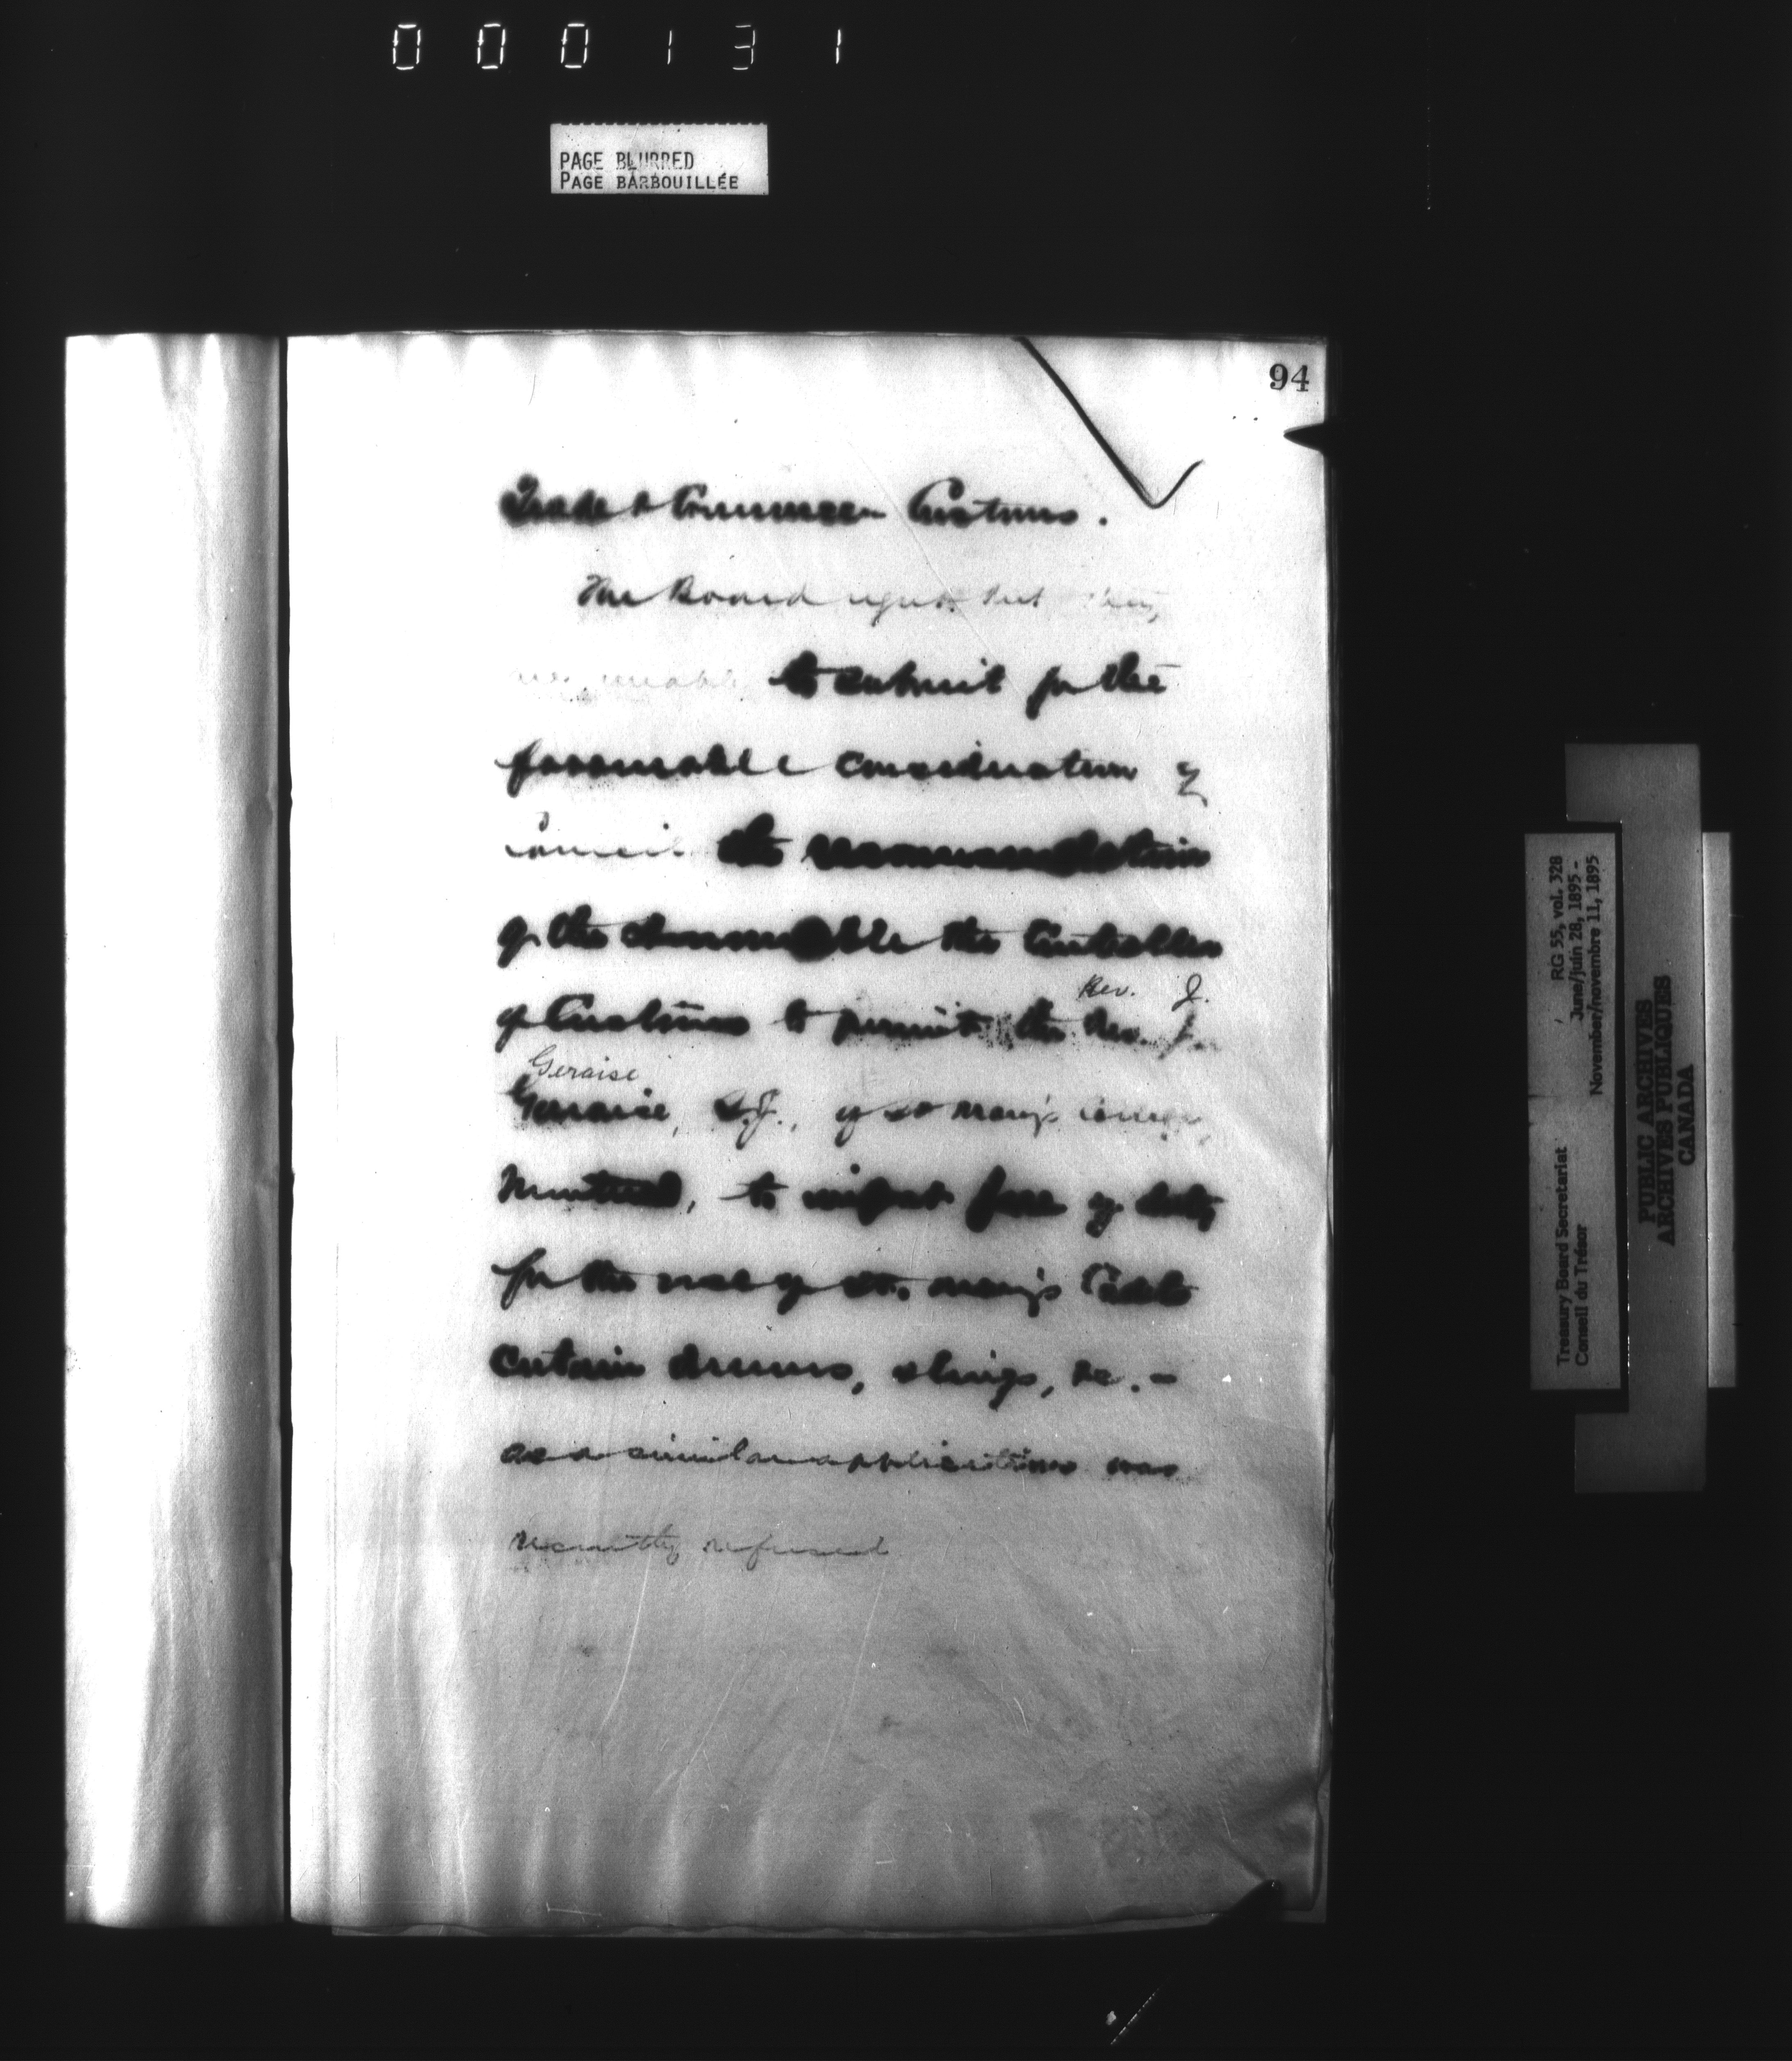 000131
PAGE BLURRED
PAGE BARBOUILLÉE
94
Trade & Commerce Customs.
The Board regret that they
are unable to submit for the
favourable consideration of
Council the recommendation
of the Honourable the Controller
Rev. J.
of Customs to permit the Rev. J.
Geraise
Gervaise, S.J., of St Mary's College,
Montreal, to import free of duty
for the use of St. Mary's Cadets
certain drums, slings, &c. -
as a similar application was
recently refused
Treasury Board Secretariat
Conseil du Trésor
RG 55, vol. 328
June/juin 28, 1895 -
November/novembre 11, 1895
PUBLIC ARCHIVES
ARCHIVES PUBLIQUES
CANADA